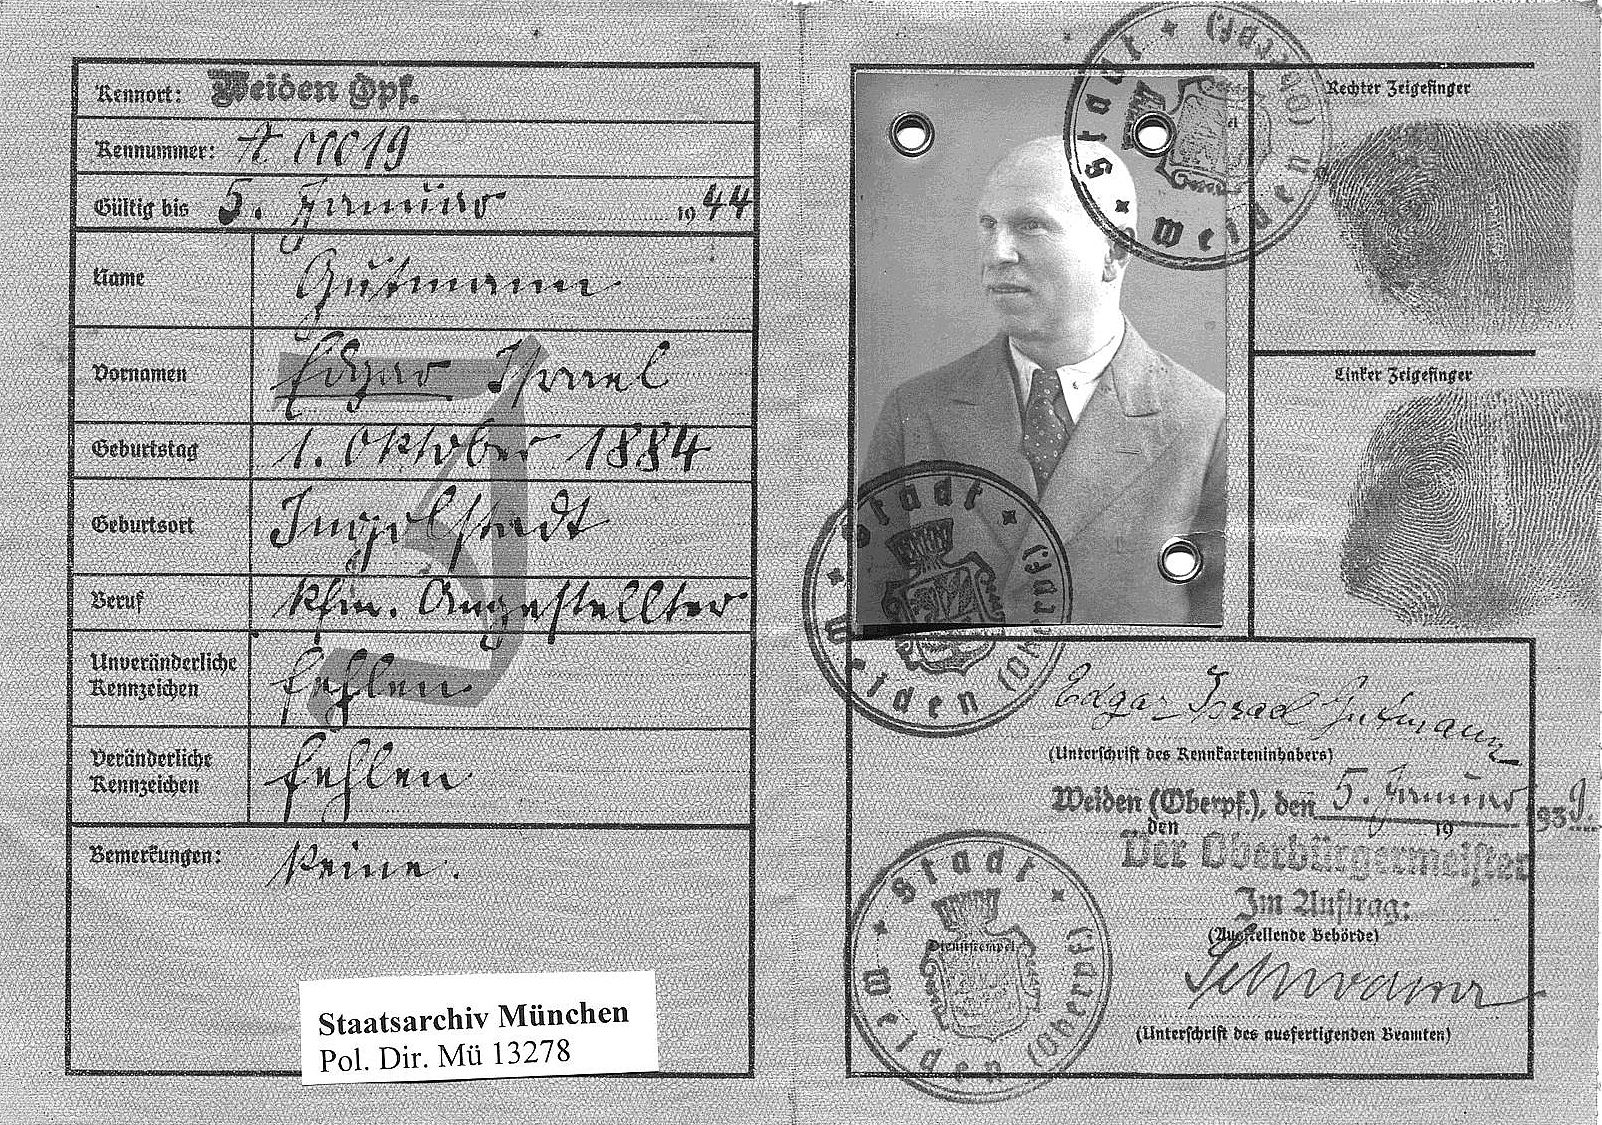 Kennort: Weiden Opf.
Kennummer: A 00019
Gültig bis 5. Januar 1944
Name Gutmann
Vornamen Edgar Israel
Geburtstag 1. Oktober 1884
Geburtsort Ingolstadt
Beruf kfm. Angestellter
Unveränderliche
Kennzeichen fehlen
Veränderliche
Kennzeichen fehlen
Bemerkungen: Keine.
J
Staatsarchiv München
Pol. Dir. Mü 13278
Stadt Weiden (Oberpf.)
Rechter Zeigefinger
Linker Zeigefinger
Stadt Weiden (Oberpf.)
Edgar Israel Gutmann
(Unterschrift des Kennkarteninhabers)
Weiden (Oberpf.), den 5. Januar 1939.
den 19
Der Oberbürgermeister
Im Auftrag:
(Ausstellende Behörde)
Stadt Weiden (Oberpf.)
Dienststempel
(Unterschrift des ausfertigenden Beamten)